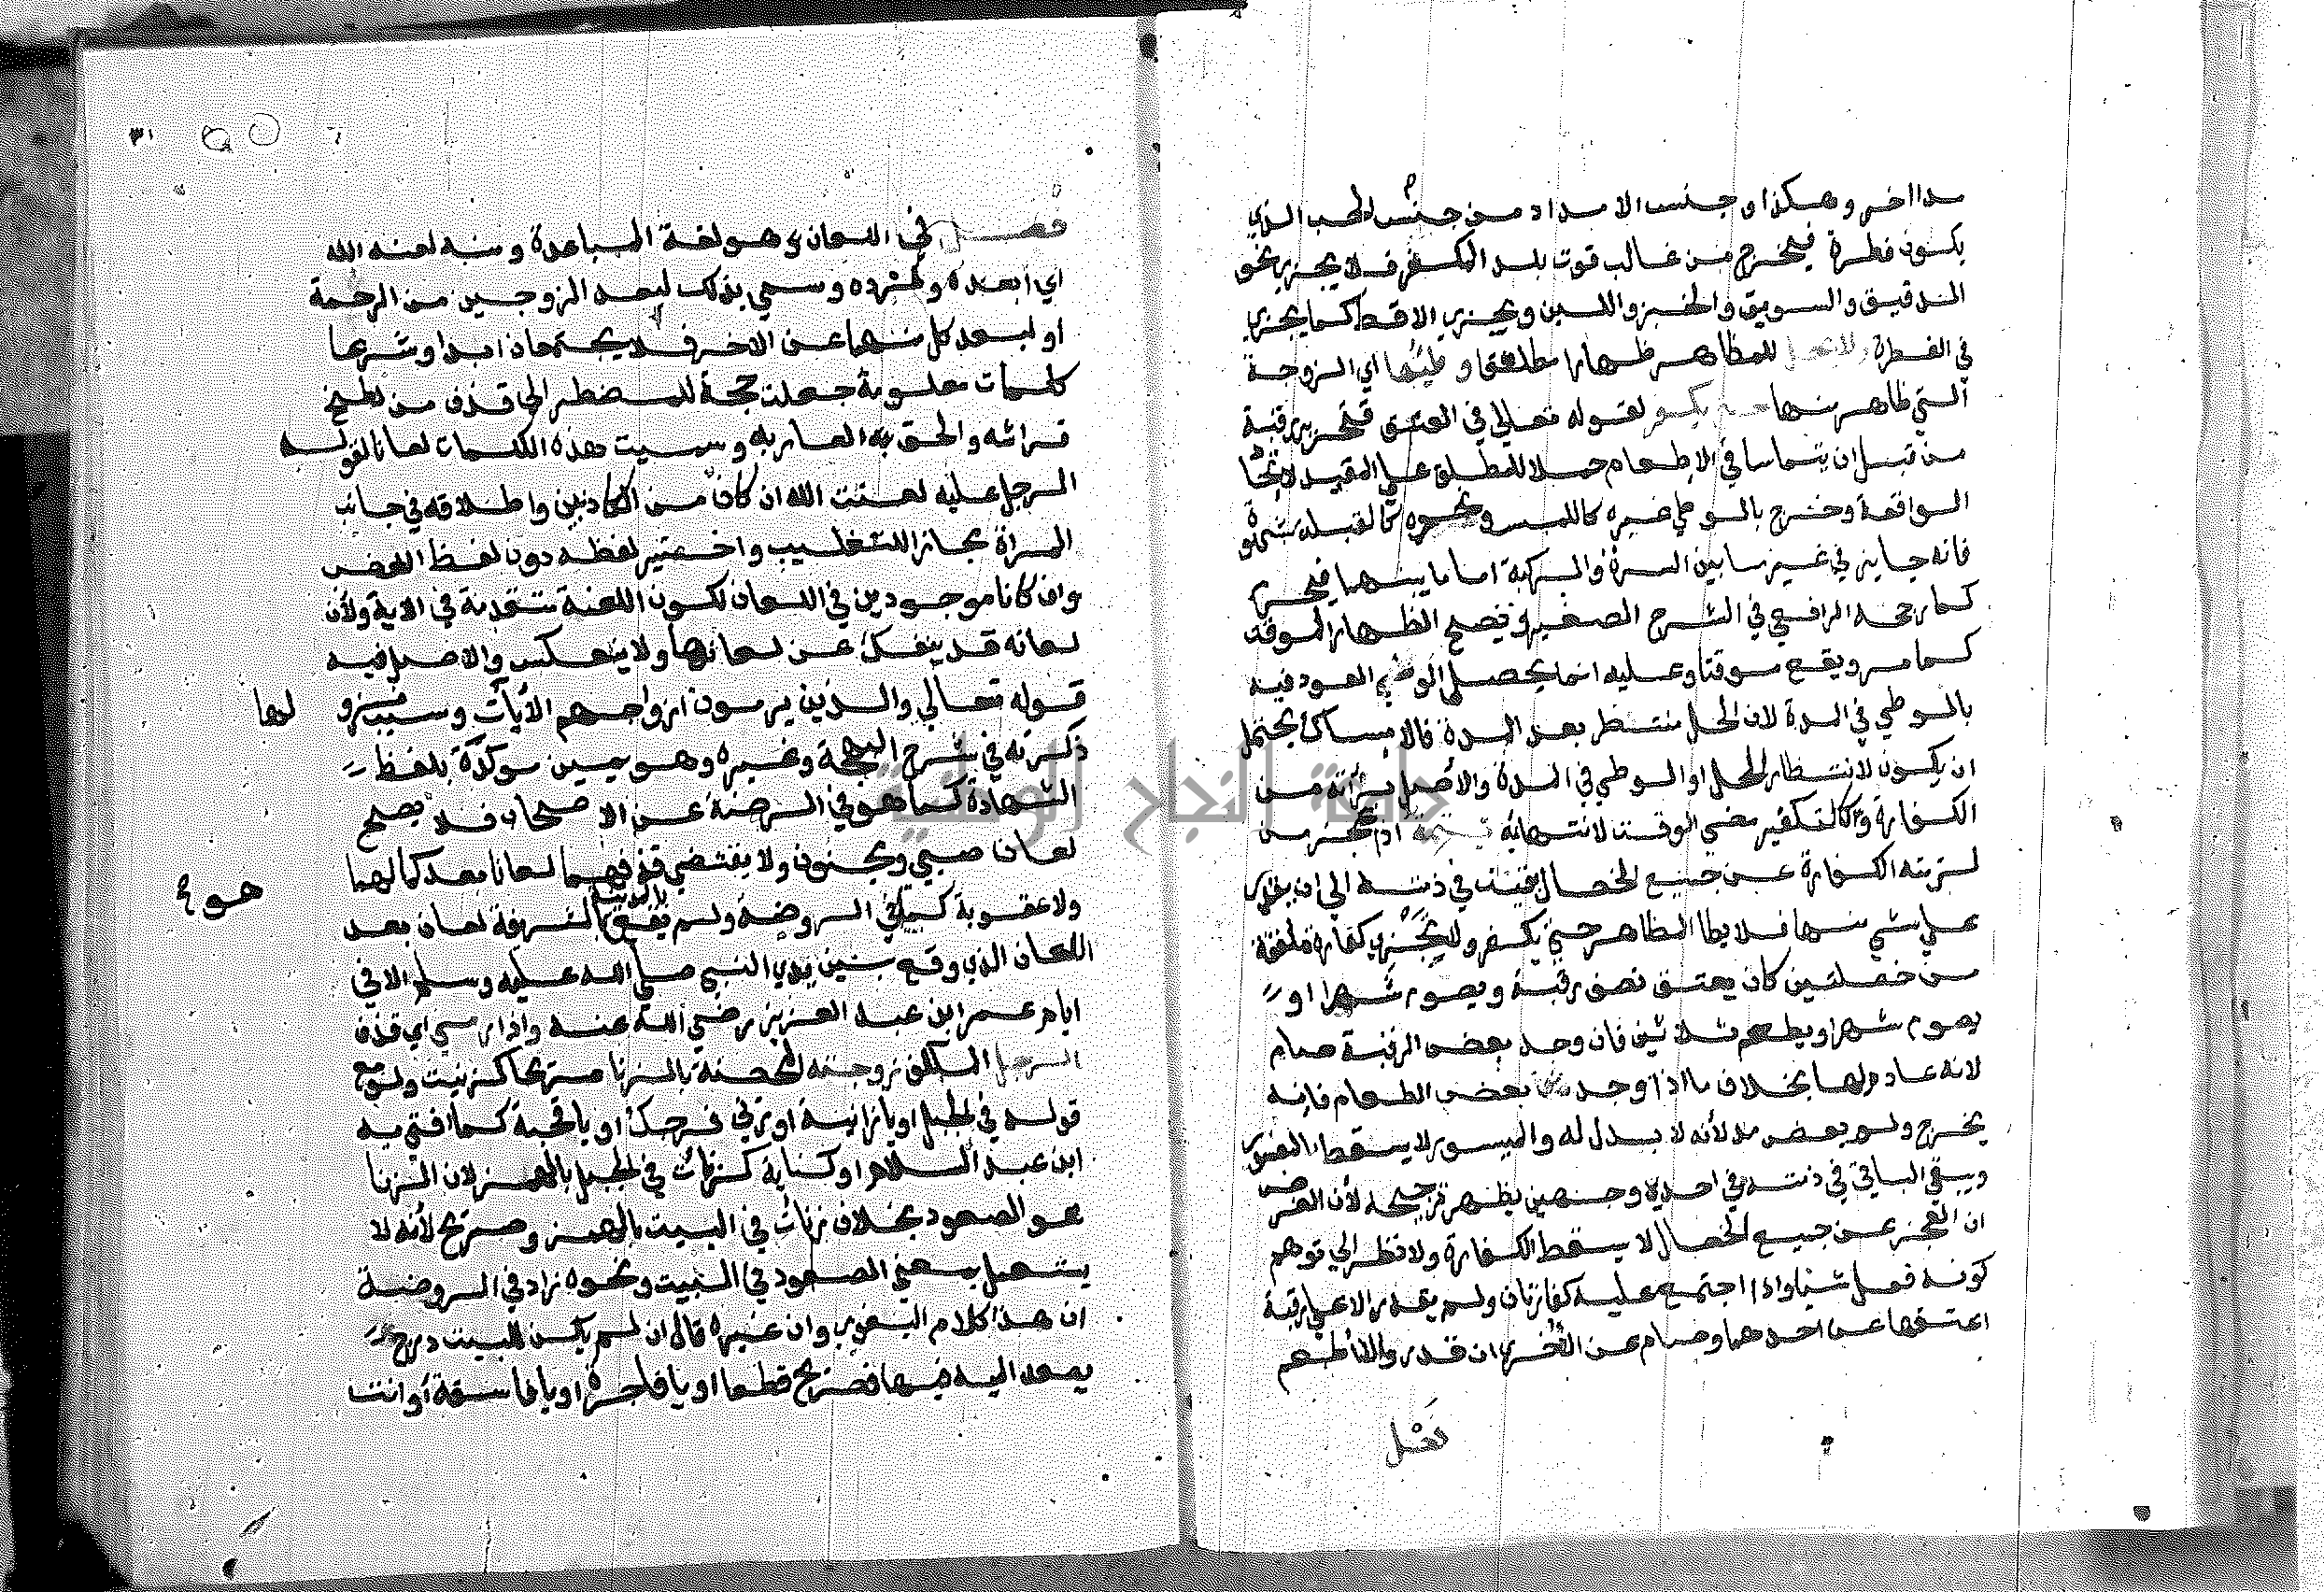 مدا اخر وهكذا وجنس الامداد من جنس الحب الذي
يكون فطرة فيخرج من غالب قوت بلد المكفر فلا يجزي نحو
الدقيق والسويق والخبز واللبن ويجزي الاقط كما يجزي
في الفطرة ولا يحل للمظاهر ظهارا مطلقا وطئها اي الزوجة
التي ظاهر منها حتى يكفر لقوله تعالى في العتق فتحرير رقبة
من قبل ان يتماسا في الاطعام حملا للمطلق على المقيد لاتحا
الواقعة وخرج بالوطئ غيره كاللمس ونحوه كالقبلة بشهوة
فانه جايز في غير ما بين السرة والركبة اما ما بينهما فيحرم
كما رجحه الرافعي في الشرح الصغير وتصح الظهار الموقت
كما مر ويقع موقتا وعليه انما يحصل العود فيه
بالوطئ في المدة لان الحل منتظر بعد المدة فالامساك يحتمل
ان يكون لانتظار الحل او الوطئ في المدة والاصل برأته من
الكفارة وكالتكفير مضي الوقت لانتهائه تتمة اذا عجز من
لزمته الكفارة عن جميع الخصال بقيت في ذمته الى ان يقدر
على شي منها فلا يطا المظاهر حتى يكفر ولا يجزي كفارة ملفقة
من خصلتين كان يعتق نصف رقبة ويصوم شهرا او
يصوم شهرا ويطعم ثلاثين فان وجد بعض الرقبة صام
لانه عادم لها بخلاف ما اذا وجد بعض الطعام فانه
يخرج ولو بعض مد لأنه لا بدل له والميسور لا يسقط بالمعسور
ويبقى الباقي في ذمته في احد وجهين يظهر ترجيحه لأن الغرض
ان العجز عن جميع الخصال لا يسقط الكفارة ولا نظر الى توهم
كونه فعل شيا واذا اجتمع عليه كفارتان ولم يقدر الا على رقبة
اعتقها عن احدهما وصام عن الأخرى ان قدر والا أطعم
فصل
٣١
فصل في اللعان وهو لغة المباعدة ومنه لعنه الله
اي ابعده وطرده وسمي بذلك لبعد الزوجين من الرحمة
او لبعد كل منهما عن الاخر فلا يجتمعان ابدا وشرعا
كلمات معلومة جعلت حجة للمضطر الى قذف من لطخ
فراشه والحق به العار به وسميت هذه الكلمات لعانا لقول
الرجل عليه لعنت الله ان كان من الكاذبين واطلاقه في جانب
المراة مجاز للتغليب واختير لفظه دون لفظ الغضب
وان كانا موجودين في اللعان لكون اللعنة متقدمة في الاية ولأن
لعانه قد ينفك عن لعانها ولا ينعكس والاصل فيه
قوله تعالى والذين يرمون ازواجهم الأيات وسبب نزو لها
ذكرته في شرح البهجة وغيره وهو يمين موكدة بلفظ
الشهادة كما هو في الروضة عن الاصحاب فلا يصح
لعان صبي ومجنون ولا يقتضي قذفهما لعانا بعد كمالهما
ولا عقوبة كما في الروضة ولم يقع بالمدينة الشريفة لعان بعد
اللعان الذي وقع بين يدي النبي صلى الله عليه وسلم الا في
ايام عمر ابن عبد العزيز رضي الله عنه واذا رمى اي قذف
الرجل المكلف زوجته المحصنة بالزنا صريحا كزنيت ولو مع
قوله في الجبل او يا زانية او زنى فرجك او يا قحبة كما افتى به
ابن عبد السلام او كناية كزنأت في الجبل بالهمز لان الزنا
هو الصعود بخلاف زنأت في البيت بالهمز وصريح لأنه لا
يستعمل بمعنى الصعود في البيت ونحوه زاد في الروضة
ان هذا كلام البغوي وان غيره قال ان لم يكن للبيت درج
يصعد اليه فيها فصريح قطعا او يا فاجرة او يا فاسقة أو انت